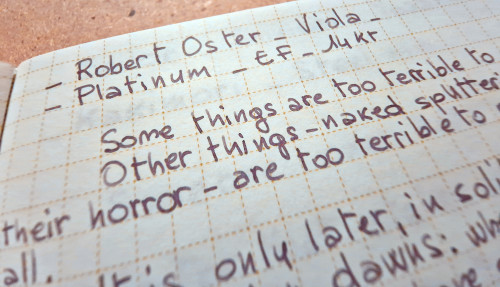 - Robert Oster - Viola -
- Platinum - EF - 14kt
Some things are too terrible to
Other things - naked sputter
their horror - are too terrible to
all. It is only later, in soli
dawns: wh